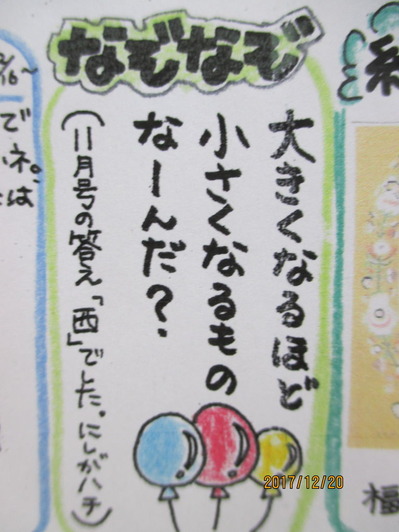 なぞなぞ
大きくなるほど
小さくなるもの
なーんだ？
(11月号の答え「西」でした。にしがハチ)
2017/12/20